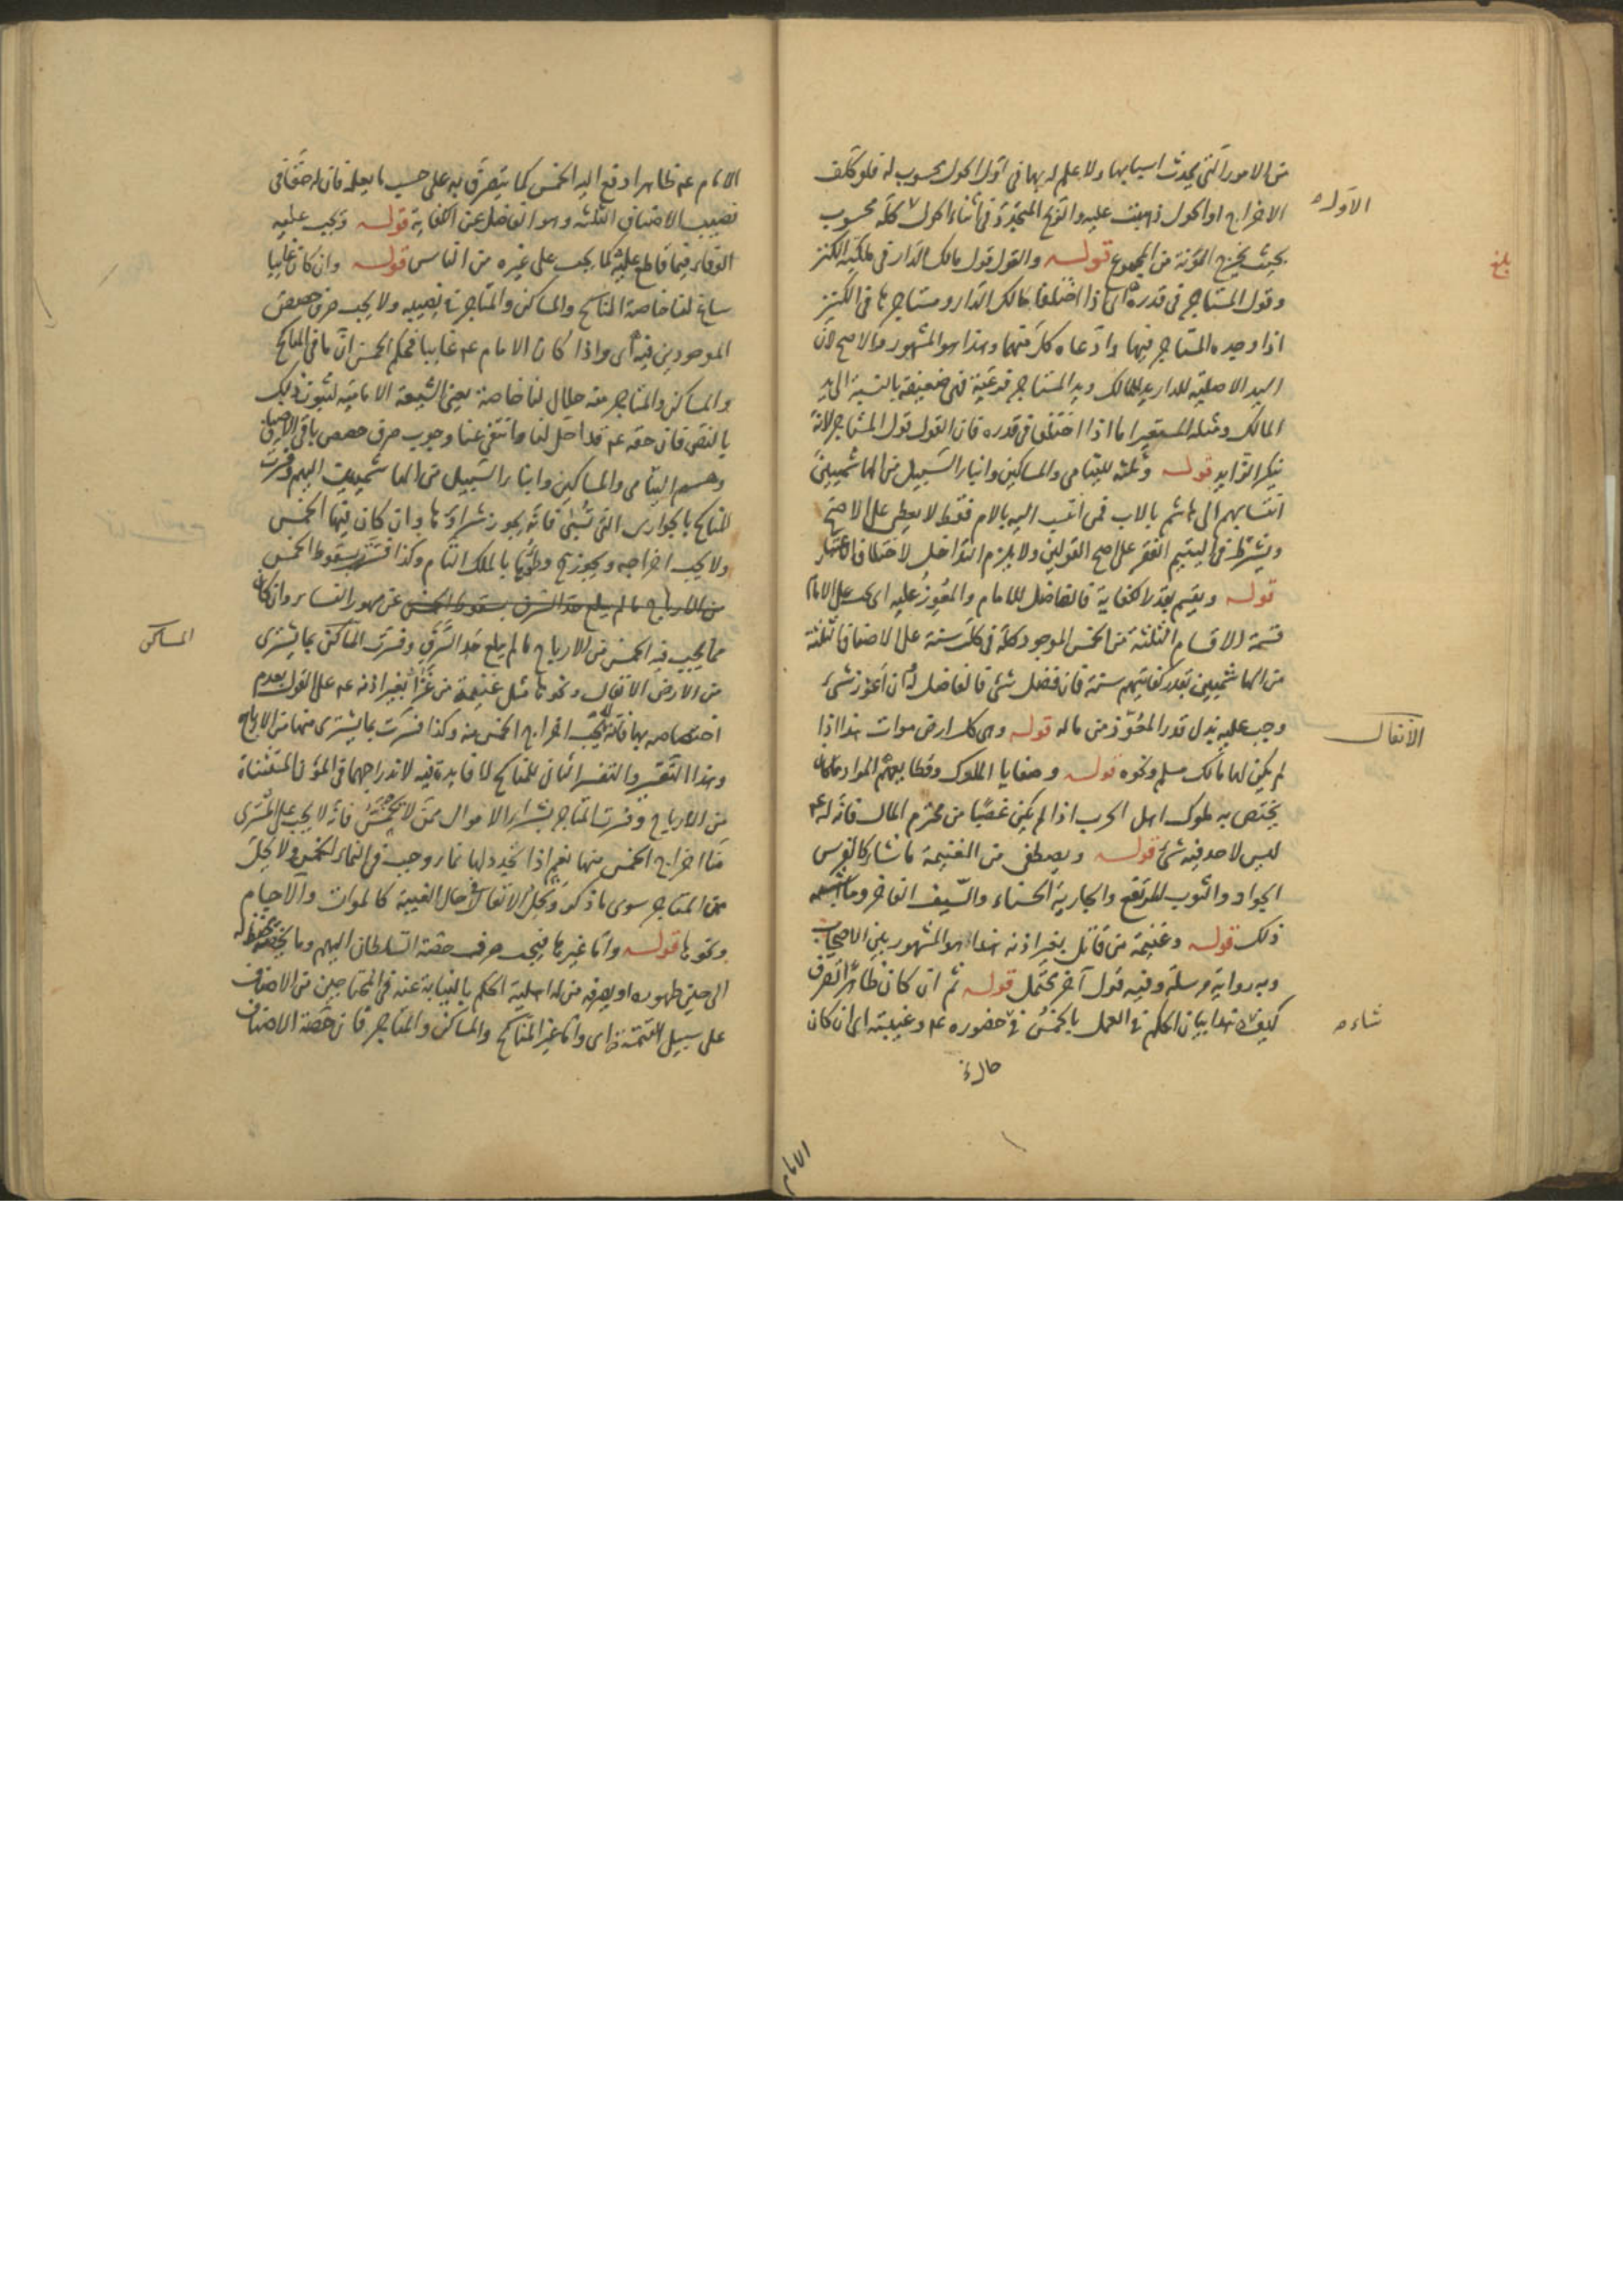 من الامور التي يحدث اسبابها ولا علم له بها في اول الحول محسوب له فلو كلف
الاخراج اول الحول ذهبت عليه والربح المتجدد في اثناء الحول كله محسوب
بحيث يخرج المؤنة من المجموع قوله والقول قول مالك الدار في ملكية الكنز
وقول المستاجر في قدره اي اذا اختلفا مالك الدار ومستاجرها في الكنز
اذا وجده المستاجر فيها وادعاه كل منهما وهذا هو المشهور والاصح لان
اليد الاصلية للدار يد المالك ويد المستاجر فرعية فهي ضعيفة بالنسبة الى يد
المالك ومثله المستعير اما اذا اختلفا في قدره فان القول قول المستاجر لانه
ينكر الزايد قوله وثلثه لليتامى والمساكين وابناء السبيل من الهاشميين
انتسابهم الى هاشم بالاب فمن انتسب اليه بالام فقط لا يعطى على الاصح
ويشترط في اليتيم الفقر على اصح القولين ولا يلزم التداخل لاختلاف الاعتبار
قوله ويقسم بقدر الكفاية فالفاضل للامام والمعوز عليه اي يجب على الامام
قسمة الاقسام الثلثة من الخمس الموجود كله في كل سنة على الاصناف الثلثة
من الهاشميين بقدر كفايتهم سنة فان فضل شئ فالفاضل له وان اعوز شئ
وجب عليه بذل قدر المعوز من ماله قوله وهي كل ارض موات هذا اذا
لم يكن لها مالك مسلم ونحوه قوله وصفايا الملوك وقطايعهم المراد ما كان
يختص به ملوك اهل الحرب اذا لم يكن غصبا من محترم المال فانه له عم
ليس لاحد فيه شئ قوله ويصطفى من الغنيمة ما شاء كالفرس
الجواد والثوب المرتفع والجارية الحسناء والسيف الفاخر وما اشبه
ذلك قوله وغنيمة من قاتل بغير اذنه هذا هو المشهور بين الاصحاب
وبه رواية مرسلة وفيه قول آخر محتمل قوله ثم ان كان ظاهرا تصرف
كيف شاء هذا بيان الحكم في العمل بالخمس في حضوره عم وغيبته اي ان كان
الاول
بلغ
الانفال
شاء
الامام
الامام عم ظاهرا دفع اليه الخمس كما يتصرف به على حسب ما يعلمه فان له حقا في
نصيب الاصناف الثلثه وهو الفاضل عن الكفاية قوله ويجب عليه
الوفاء فيما قاطع عليه كما يجب على غيره من الناس قوله وان كان غايبا
ساغ لنا خاصة المناكح والمساكن والمتاجر في نصيبه ولا يجب صرف حصص
الموجودين فيه اي واذا كان الامام عم غايبا فحكم الخمس ان ما في المناكح
والمساكن والمتاجر منه حلال لنا خاصة يعني الشيعة الامامية لثبوت ذلك
بالنص فان حقه عم قد احل لنا وانتفى عنا وجوب صرف حصص باقي الاصناف
وهم اليتامى والمساكين وابناء السبيل من الهاشميين اليهم وفسرت
المناكح بالجواري التي تسبى فانه يجوز شراؤها وان كان فيها الخمس
ولا يجب اخراجه ويجوز وطؤها بالملك التام وكذا فسر بسقوط الخمس
من الارباح ما لم يبلغ حد السرف بسقوط الخمس عن مهور النساء وان كان
مما يجب فيه الخمس من الارباح ما لم يبلغ حد السرف وفسرت المساكن بما يشترى
من الارض الانفال ونحوها مثل غنيمة من غزا بغير اذنه عم على القول بعدم
اختصاصه بها فانه لا يجب اخراج الخمس منه وكذا فسرت بما يشترى منها من الارباح
وهذا التفسير والتفسير الثاني للمناكح لا فايدة فيه لاندراجهما في المؤن المستثناة
من الارباح وفسرت المتاجر بشراء الاموال ممن لا يخمس فانه لا يجب على المشتري
منا اخراج الخمس منها نعم اذا تجدد لها نماء وجب في النماء الخمس ولا يحل
من المتاجر سوى ما ذكر وتحل الانفال في حال الغيبة كالموات والآجام
ونحوها قوله واما غيرها فيجب صرف حصة السلطان اليهم وما يخصه يحفظ له
الى حين ظهوره او يصرفه من له اهلية الحكم بالنيابة عنه في المحتاجين من الاصناف
على سبيل التتمة اي واما غير المناكح والمساكن والمتاجر فان حصة الاصناف
المساكن